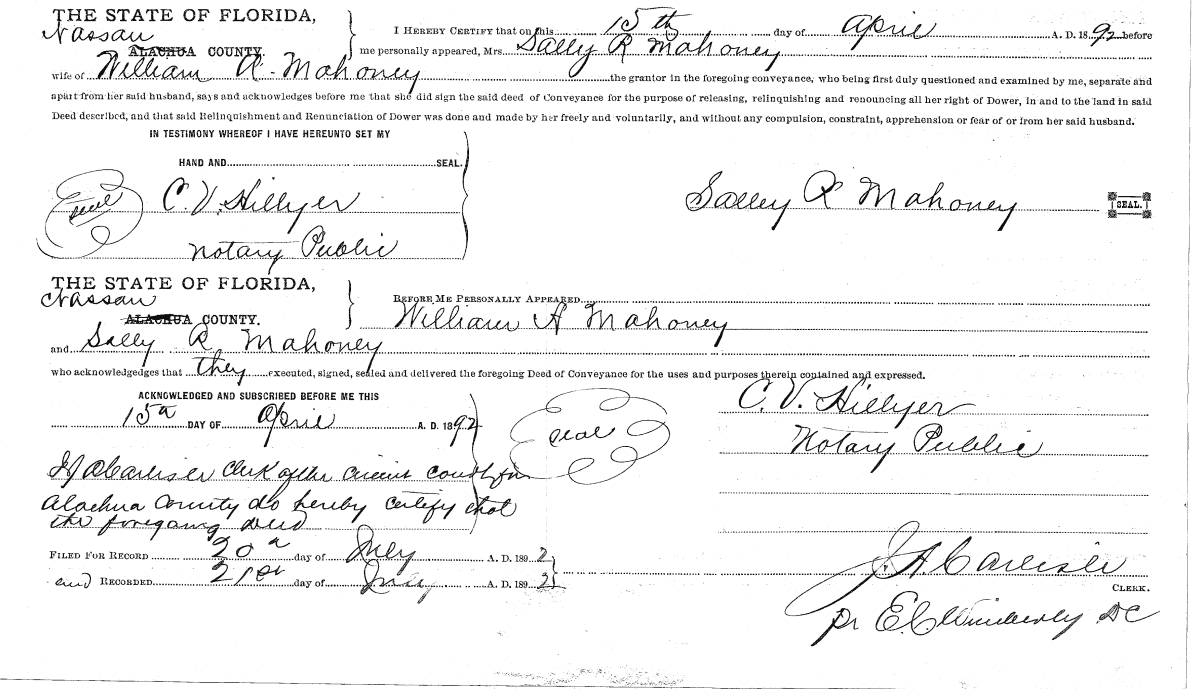 THE STATE OF FLORIDA,
Nassau
ALACHUA COUNTY.
I HEREBY CERTIFY that on this 15th day of April A. D. 1892 before
me personally appeared, Mrs. Sally R Mahoney
wife of William A. Mahoney the grantor in the foregoing conveyance, who being first duly questioned and examined by me, separate and
apart from her said husband, says and acknowledges before me that she did sign the said deed of Conveyance for the purpose of releasing, relinquishing and renouncing all her right of Dower, in and to the land in said
Deed described, and that said Relinquishment and Renunciation of Dower was done and made by her freely and voluntarily, and without any compulsion, constraint, apprehension or fear of or from her said husband.
IN TESTIMONY WHEREOF I HAVE HEREUNTO SET MY
HAND AND SEAL.
seal C. V. Hillyer
Notary Public
Salley R Mahoney SEAL.
THE STATE OF FLORIDA,
Nassau
ALACHUA COUNTY.
BEFORE ME PERSONALLY APPEARED
William A Mahoney
and Sally R. Mahoney
who acknowledgedges that they executed, signed, sealed and delivered the foregoing Deed of Conveyance for the uses and purposes therein contained and expressed.
ACKNOWLEDGED AND SUBSCRIBED BEFORE ME THIS
15th DAY OF April A. D. 1892
seal
C. V. Hillyer
Notary Public
I J A Carlisle Clerk of the circuit court for
Alachua County do hereby certify that
the foregoing deed
FILED FOR RECORD 20th day of July A. D. 1892
and RECORDED 21st day of July A. D. 1892
J. A. Carlisle
CLERK.
pr E C Wimberly DC